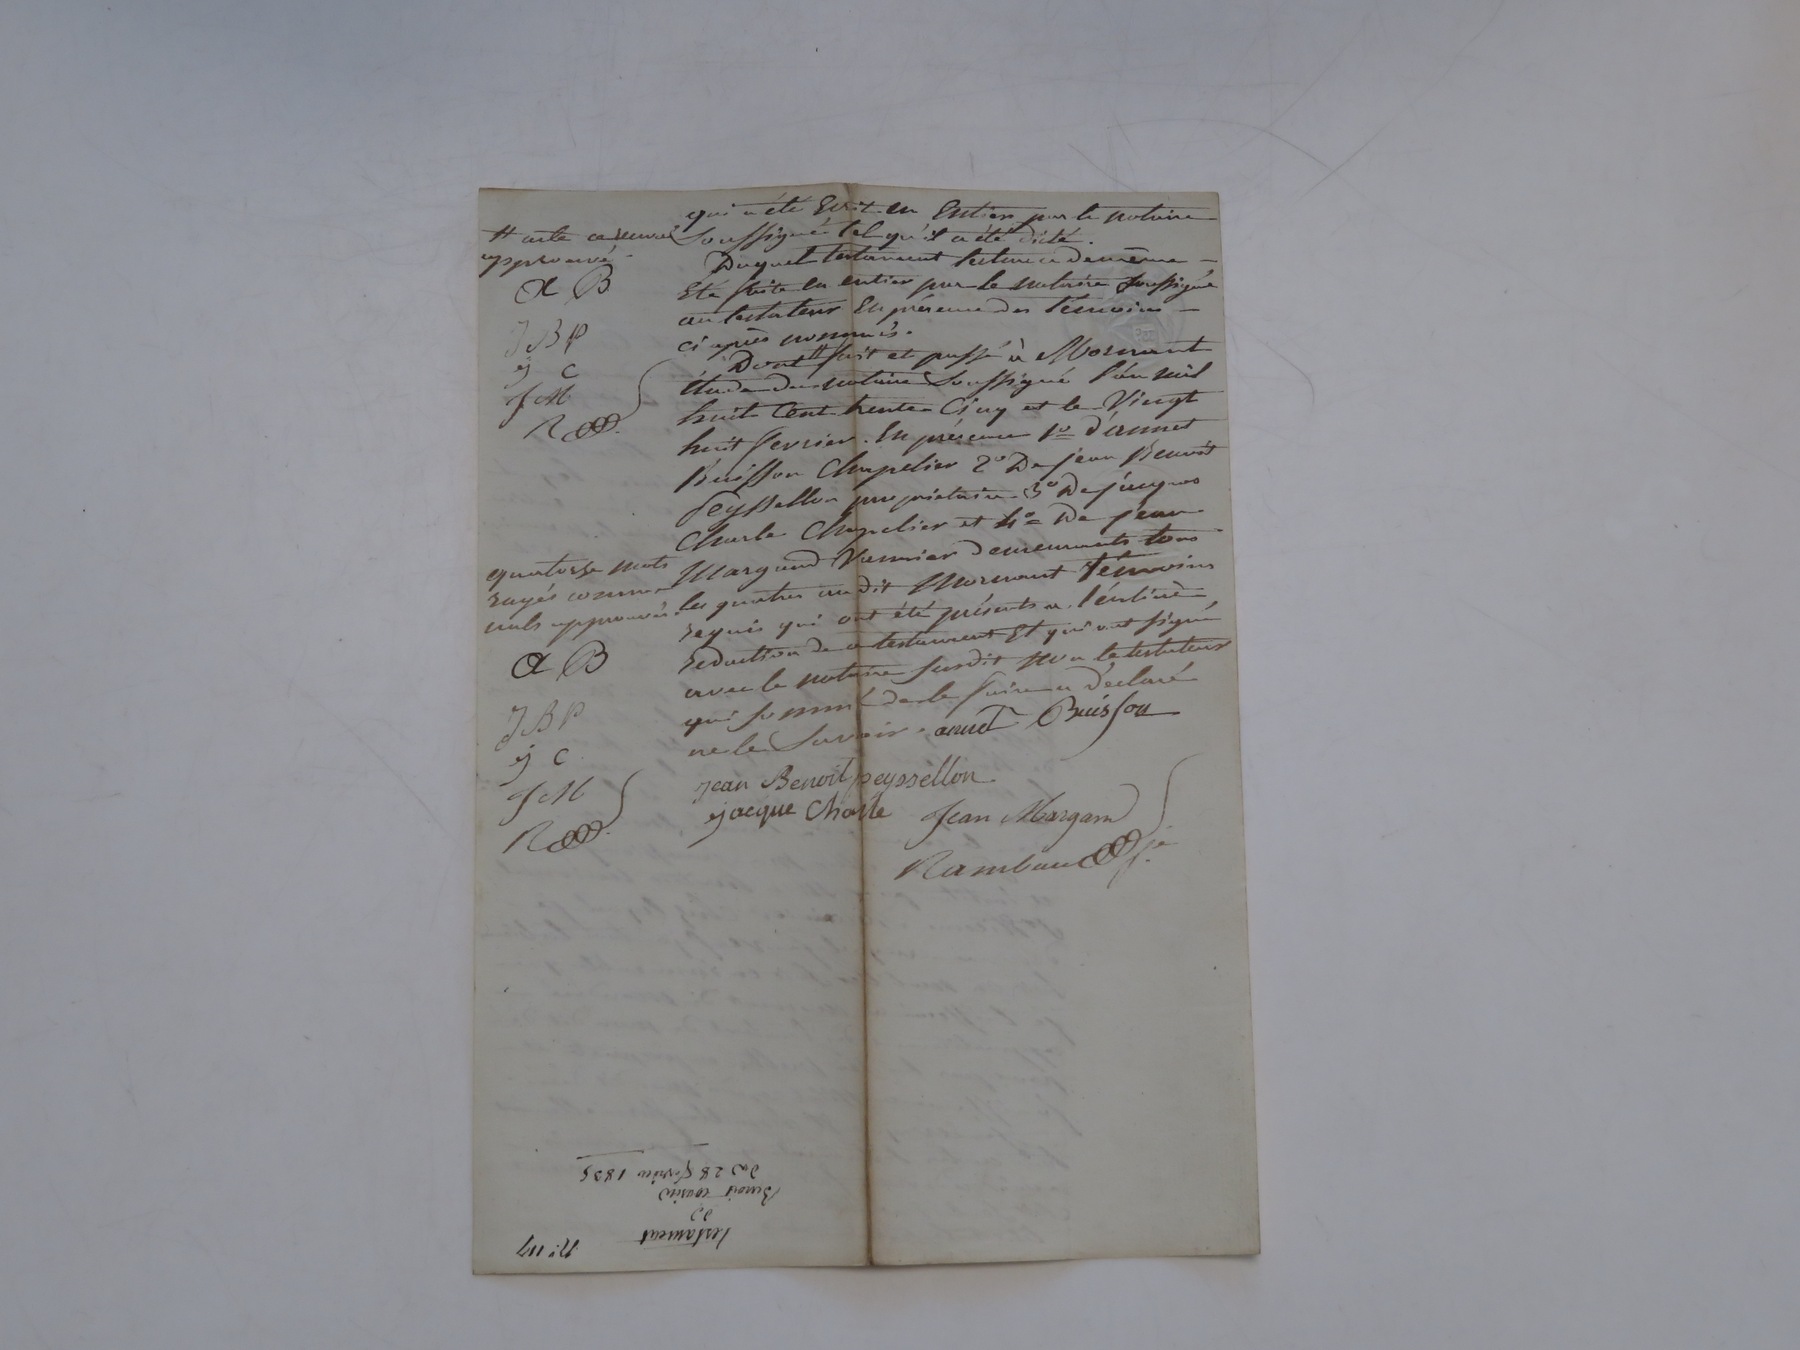 qui a été Ecrit en Entier par le notaire
soussigné tel qu'il a été dicté.
Duquel testament lecture a de même
été faite en entier par le notaire soussigné
au testateur En présence des témoins
ci après nommés.
Dont # fait et passé à Mornant
étude du notaire soussigné l'an mil
huit Cent trente Cinq et le Vingt
huit fevrier. En présence 1º d'annet
Buisson Chapelier 2º De jean Benoît
Peyssellon propriétaire 3º De jacques
Charle Chapelier et 4º De jean
Margand Vannier demeurants tous
les quatres au dit Mornant témoins
requis qui ont été présents a l'entière
redaction de ce testament Et qui ont signé
avec le notaire susdit non le testateur
qui sommé de le faire a déclaré
ne le Savoir. annet Buisson
jean Benoit peyssellon
jacque Charle Jean Margand
Rambaud
# acte ce renvoi
approuvé
A B
J B P
j C
J M
R
quatorze mots
rayés comme
nuls approuvés.
A B
J B P
j C
J M
R
Nº 119
Testament
de
Benoit cousin
Du 28 février 1835